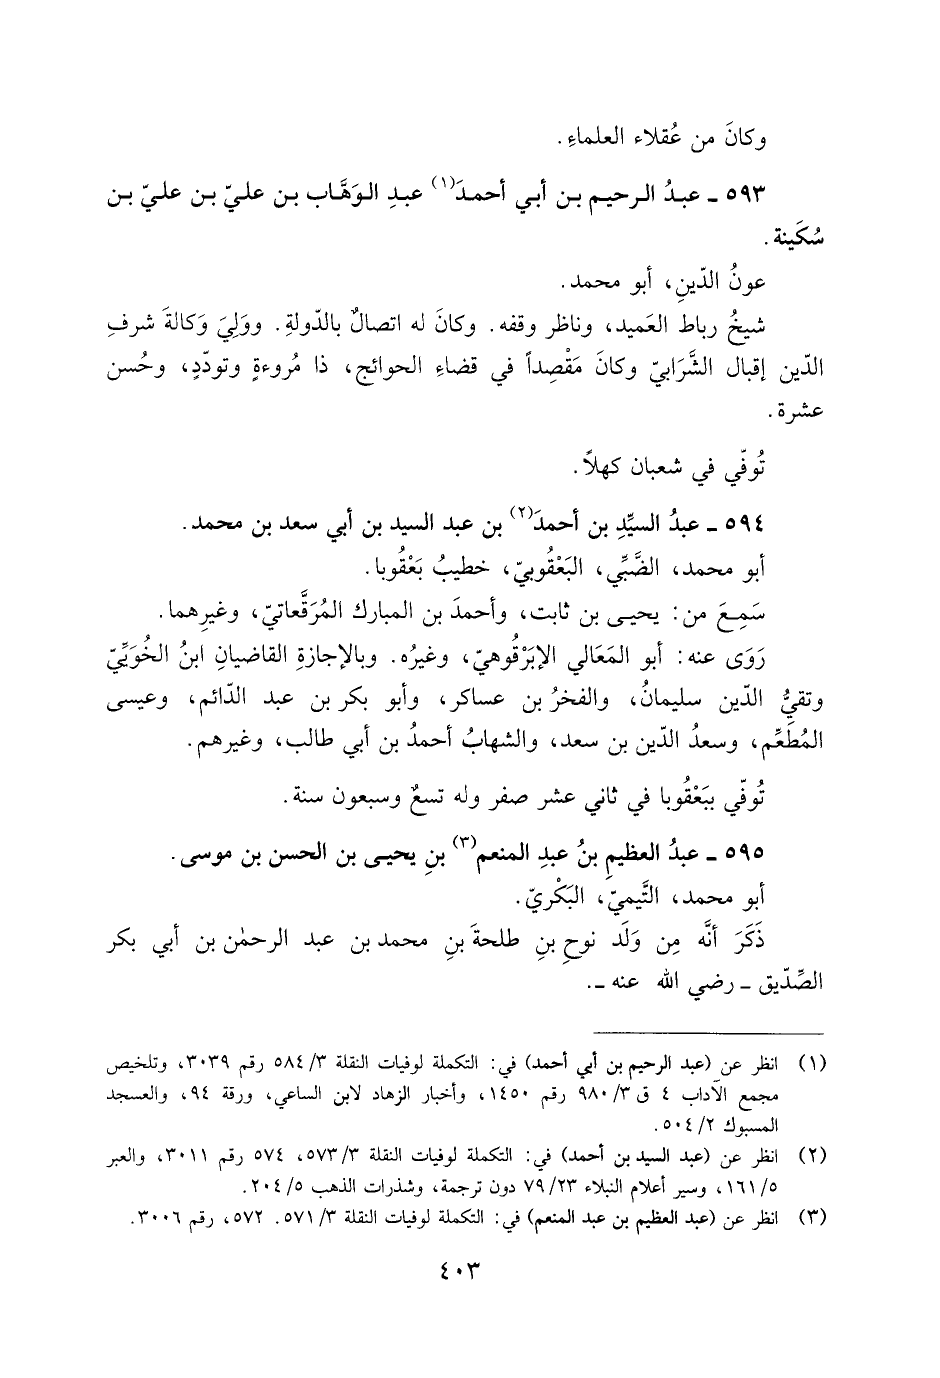 وكانَ من عُقلاء العلماءِ.
٥٩٣ ـ عبـدُ الـرحيـم بـن أبـي أحمـدَ(١) عبـدِ الـوَهَّـاب بـن علـيّ بـن علـيّ بـن
سُكَينة.
عونُ الدّينِ، أبو محمد.
شيخُ رباط العَميد، وناظر وقفه. وكانَ له اتصالٌ بالدّولةِ. ووَلِيَ وَكالةَ شرفِ
الدّين إقبال الشَّرَابيّ وكانَ مَقْصِداً في قضاءِ الحوائج، ذا مُروءةٍ وتودّدٍ، وحُسن
عشرة.
تُوفّي في شعبان كهلاً.
٥٩٤ ـ عبدُ السيِّدِ بن أحمدَ(٢) بن عبد السيد بن أبي سعد بن محمد.
أبو محمد، الضَّبِّي، البَعْقُوبيّ، خطيبُ بَعْقُوبا.
سَمِعَ من: يحيـى بن ثابت، وأحمدَ بن المبارك المُرَقَّعاتيّ، وغيرِهما.
رَوَى عنه: أبو المَعَالي الإبَرْقُوهيّ، وغيرُه. وبالإجازةِ القاضيانِ ابنُ الخُوَيِّيّ
وتقيُّ الدّين سليمانُ، والفخرُ بن عساكر، وأبو بكر بن عبد الدّائم، وعيسى
المُطَعِّم، وسعدُ الدّين بن سعد، والشهابُ أحمدُ بن أبي طالب، وغيرهم.
تُوفّي ببَعْقُوبا في ثاني عشر صفر وله تسعٌ وسبعون سنة.
٥٩٥ ـ عبدُ العظيمِ بنُ عبدِ المنعم(٣) بنِ يحيـى بن الحسن بن موسى.
أبو محمد، التَّيميّ، البَكْريّ.
ذَكَرَ أنَّه مِن وَلَد نوحِ بنِ طلحةَ بنِ محمد بن عبد الرحمٰن بن أبي بكر
الصِّدّيق ـ رضي الله عنه ـ.
(١) انظر عن (عبد الرحيم بن أبي أحمد) في: التكملة لوفيات النقلة ٣/ ٥٨٤ رقم ٣٠٣٩، وتلخيص
مجمع الآداب ٤ ق ٣/ ٩٨٠ رقم ١٤٥٠، وأخبار الزهاد لابن الساعي، ورقة ٩٤، والعسجد
المسبوك ٢/ ٥٠٤.
(٢) انظر عن (عبد السيد بن أحمد) في: التكملة لوفيات النقلة ٣/ ٥٧٣، ٥٧٤ رقم ٣٠١١، والعبر
٥/ ١٦١، وسير أعلام النبلاء ٢٣/ ٧٩ دون ترجمة، وشذرات الذهب ٥/ ٢٠٤.
(٣) انظر عن (عبد العظيم بن عبد المنعم) في: التكملة لوفيات النقلة ٣/ ٥٧١. ٥٧٢، رقم ٣٠٠٦.
٤٠٣